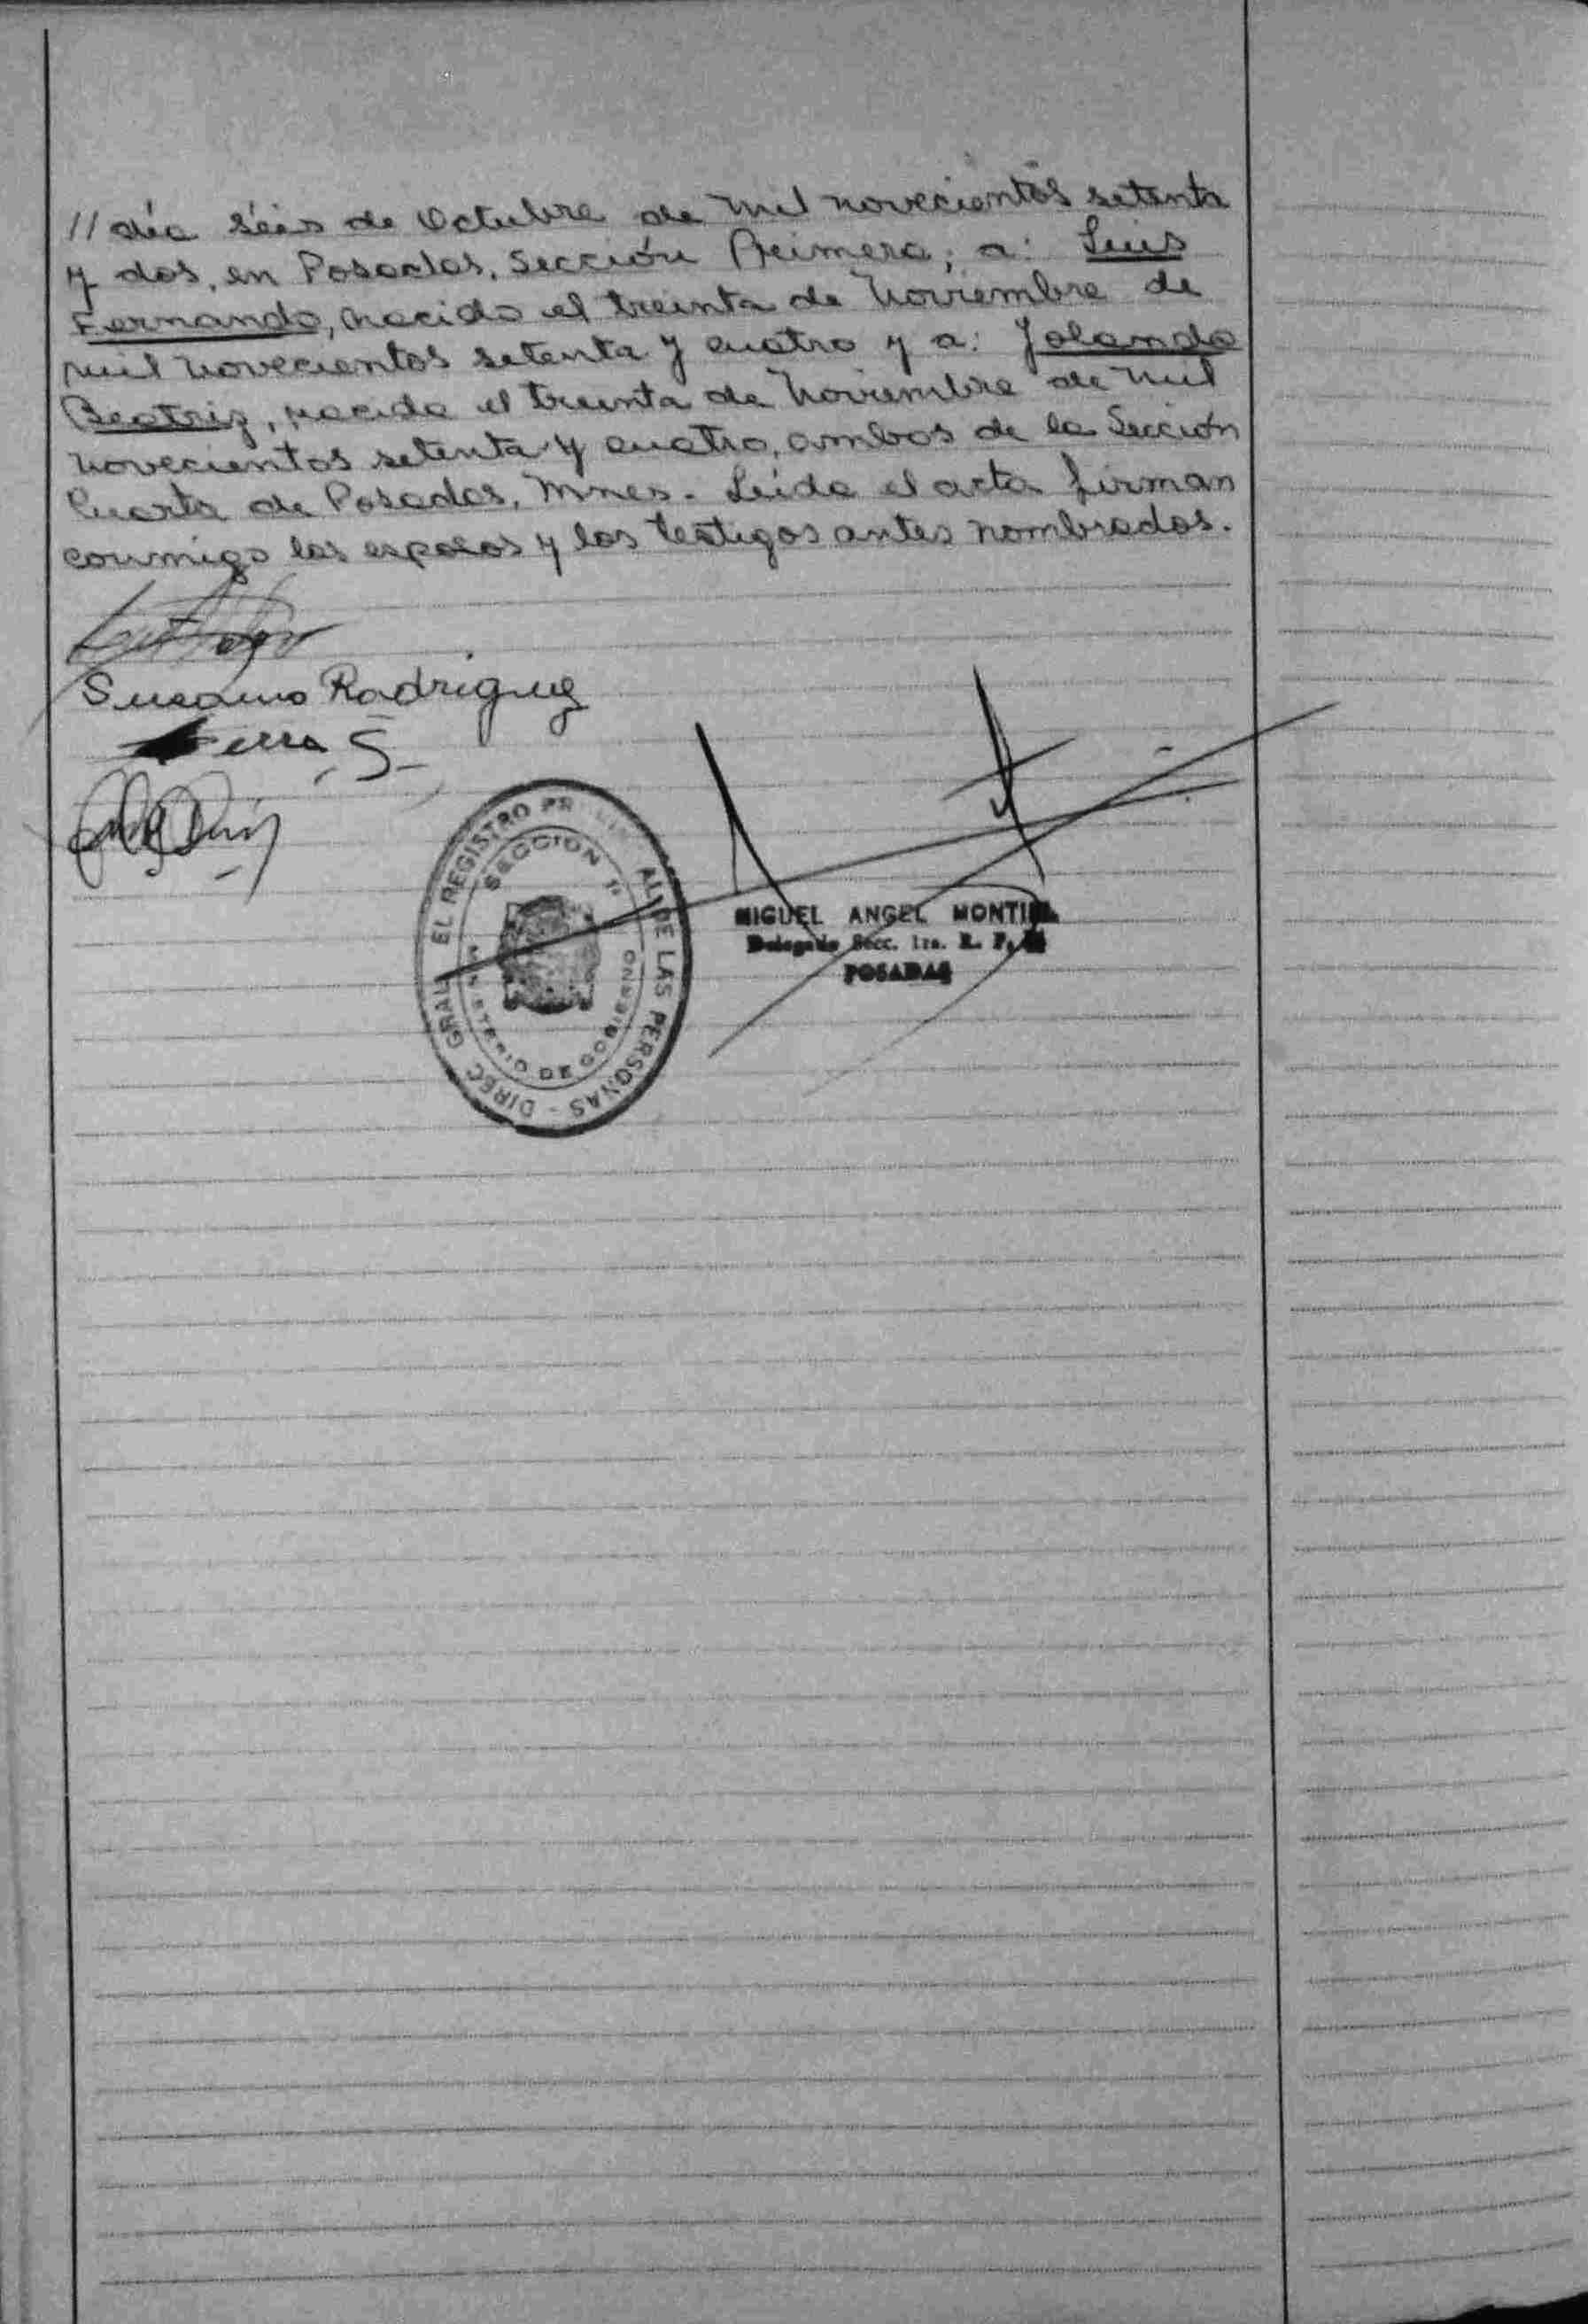 // día séis de Octubre de mil novecientos setenta
y dos, en Posadas, Sección Primera; a: Luis
Fernando, nacido el treinta de Noviembre de
mil novecientos setenta y cuatro y a: Yolanda
Beatriz, nacida el treinta de Noviembre de mil
novecientos setenta y cuatro, ambos de la Sección
Cuarta de Posadas, Mnes. - Leída el acta firman
conmigo los esposos y los testigos antes nombrados.
Rodriguez
DIREC GRAL EL REGISTRO DE LAS PERSONAS -
SECCION 1ª
MINISTERIO DE GOBIERNO
MIGUEL ANGEL
Delegado Secc. 1ra. R. P.
POSADAS